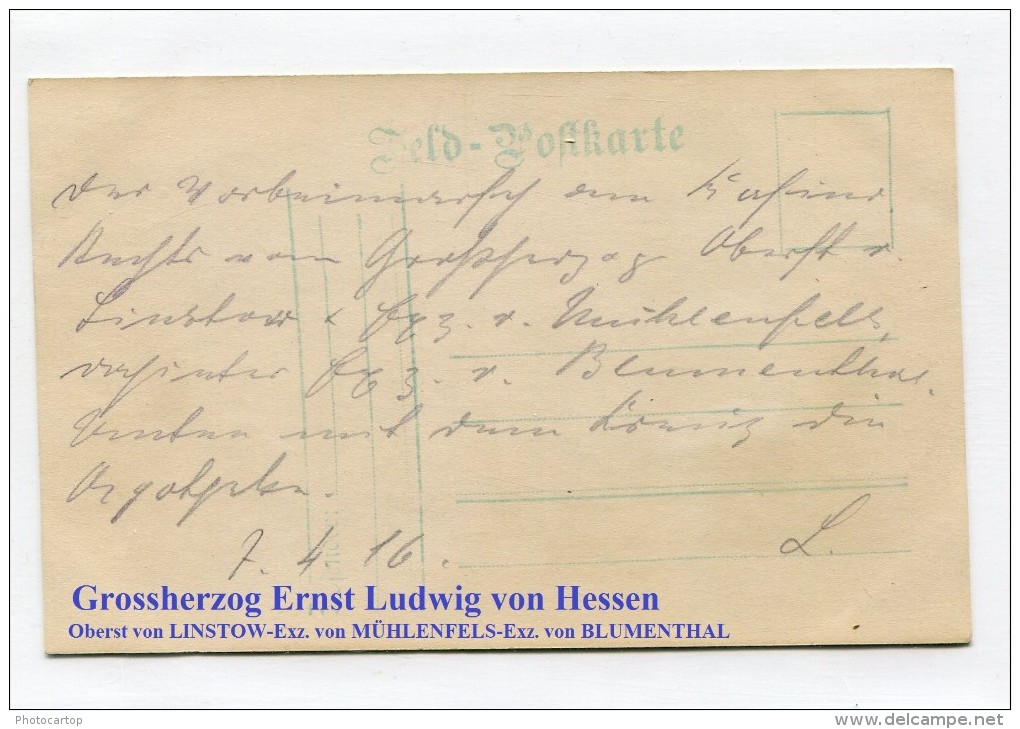 Feld-Postkarte
Der Vorbeimarsch am Kasino
Rechts vom Großherzog Oberst v.
Linstow & Exz. v. Mühlenfels,
dahinter Exz. v. Blumenthal.
Unten mit dem Kreuz die
7.4.16. L.
Grossherzog Ernst Ludwig von Hessen
Oberst von LINSTOW-Exz. von MÜHLENFELS-Exz. von BLUMENTHAL
Photocartop
www.delcampe.net